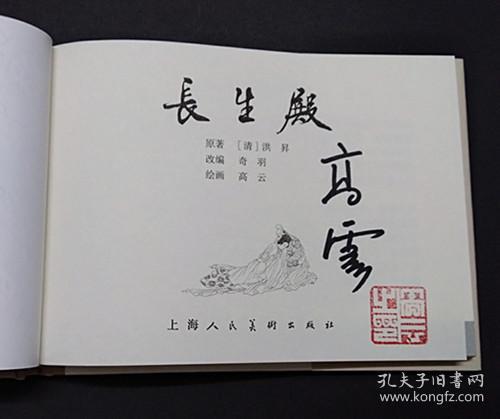 長生殿
原著 [清]洪昇
改编 奇羽
绘画 高云
高雲
上海人民美術出版社
孔夫子旧书网
www.kongfz.com